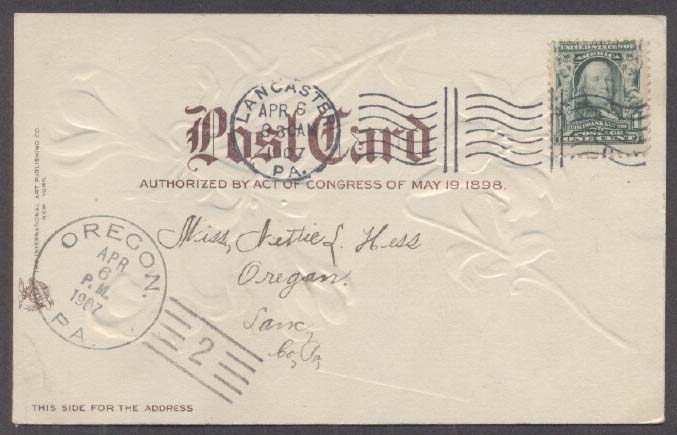 UNITED STATES OF
FRANKLIN
POSTAGE
ONE CENT
LANCASTER
APR 6
8-30AM
1907
PA.
Post Card
AUTHORIZED BY ACT OF CONGRESS OF MAY 19, 1898.
THE INTERNATIONAL ART PUBLISHING CO.
NEW YORK.
Miss, Nettie L. Hess
Oregan.
Lanc,
Co, Pa,
OREGON.
APR
6
P.M.
1907
PA.
2
THIS SIDE FOR THE ADDRESS